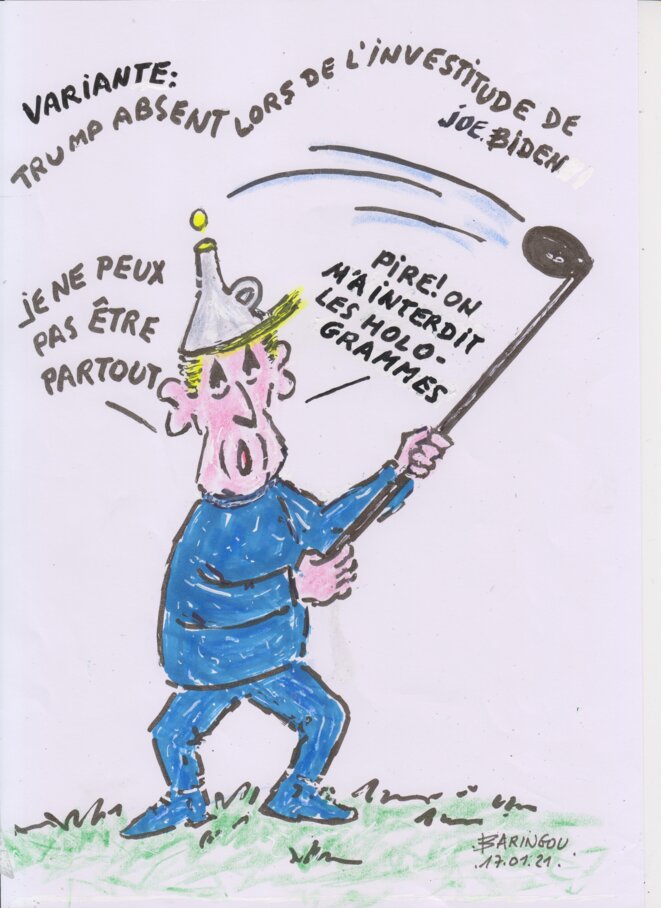 VARIANTE:
TRUMP ABSENT LORS DE L'INVESTITUDE DE
JOE BIDEN
JE NE PEUX
PAS ÊTRE
PARTOUT
PIRE! ON
M'A INTERDIT
LES HOLO-
GRAMMES
BARINGOU
.17.01.21.